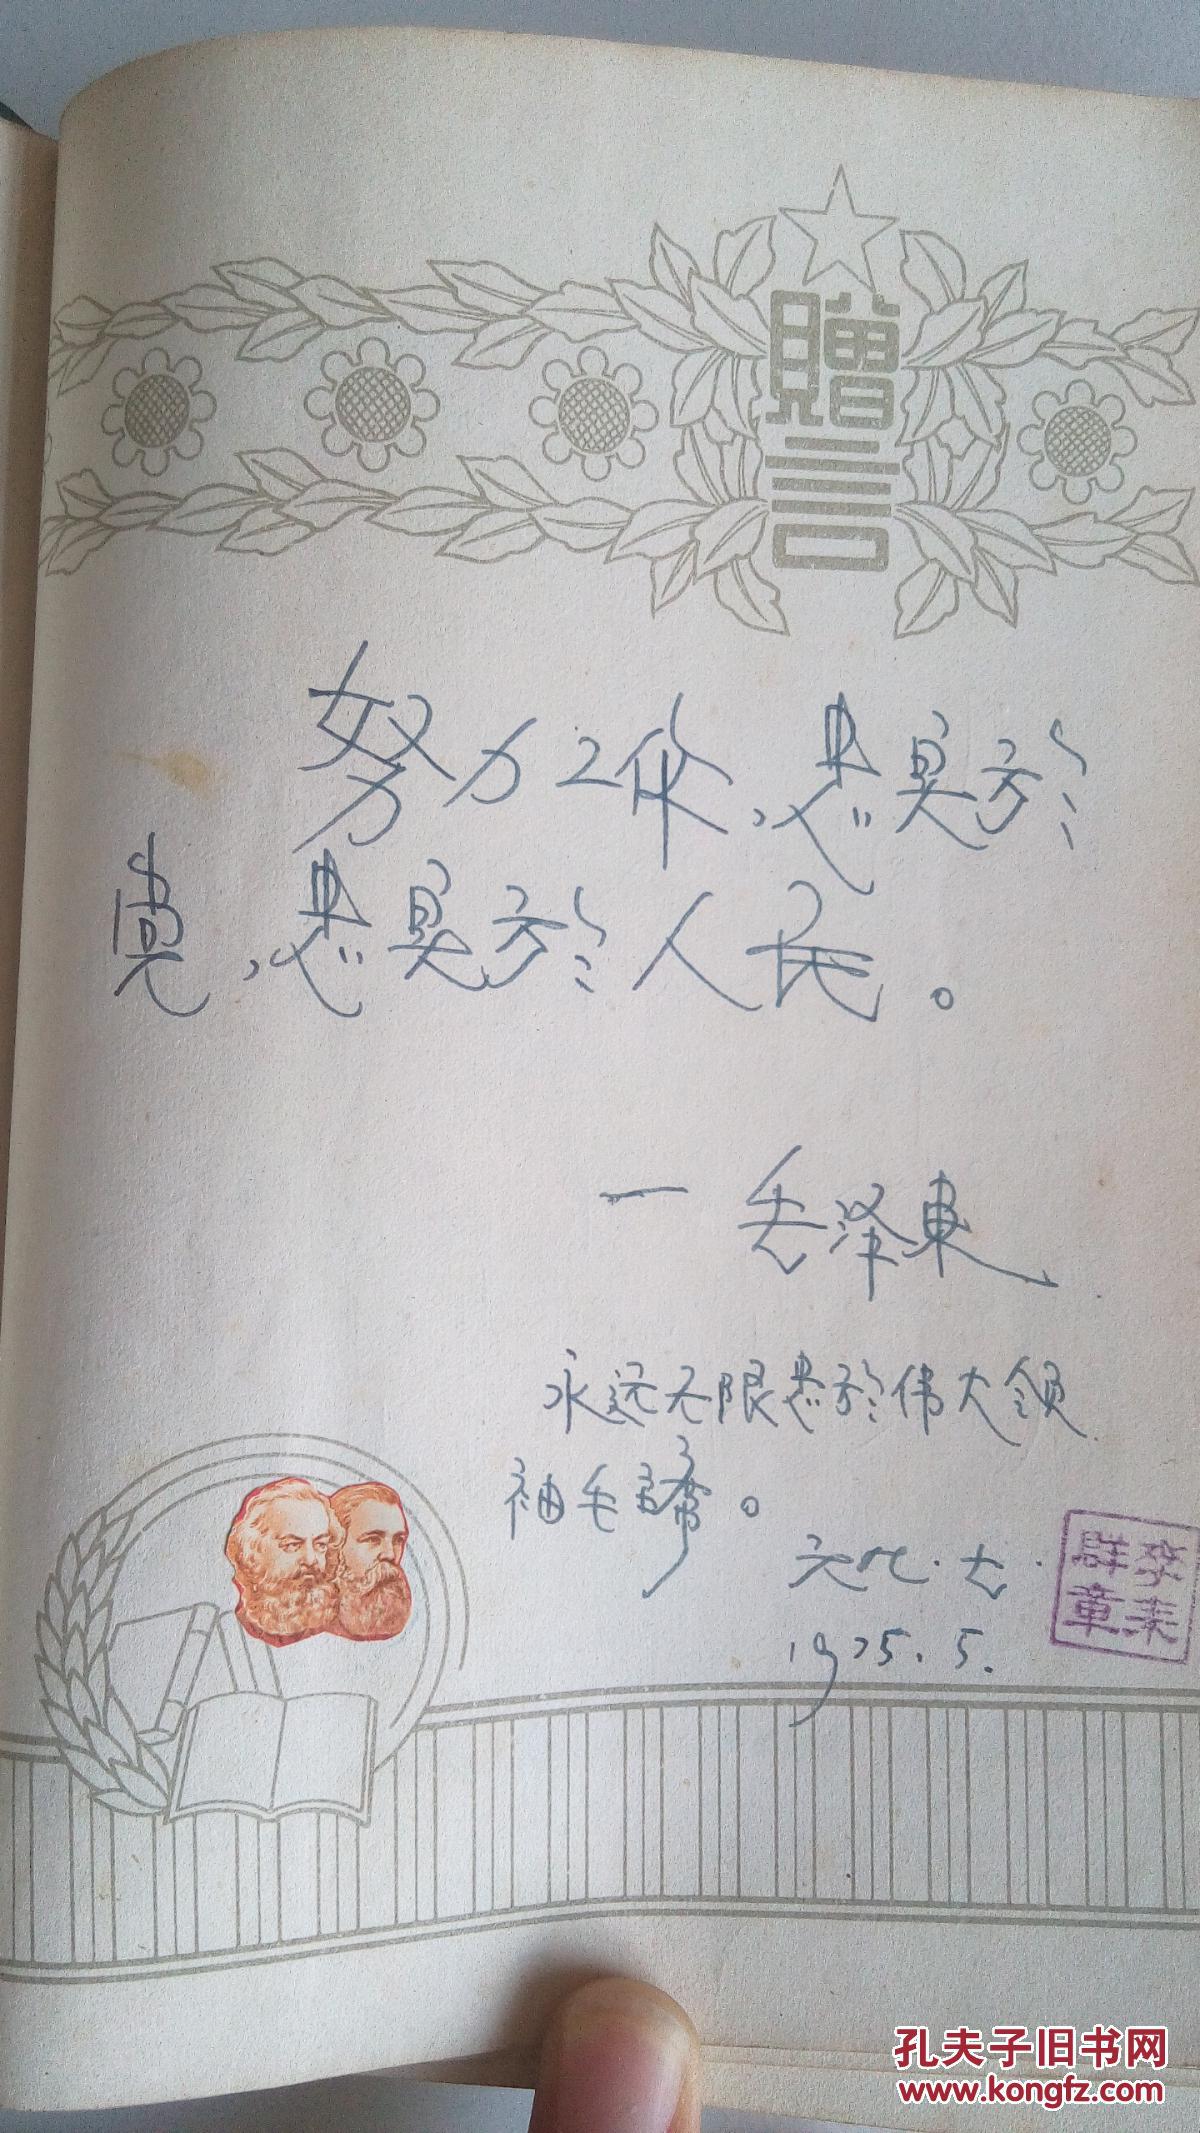 贈言
努力工作,忠实於
党,忠实於人民。
一 毛泽東
永远无限忠於伟大领
袖毛主席。
1975.5.
孔夫子旧书网
www.kongfz.com